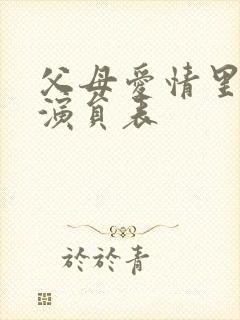 父母愛情里
演員表
於於青